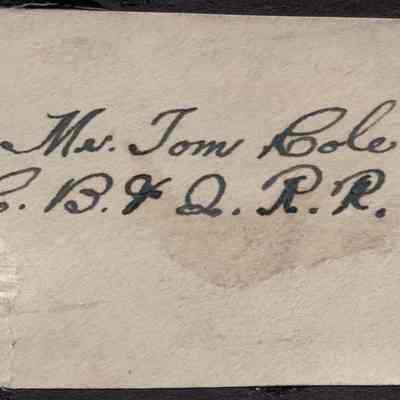 Mr. Tom Cole
C. B. & Q. R. R.